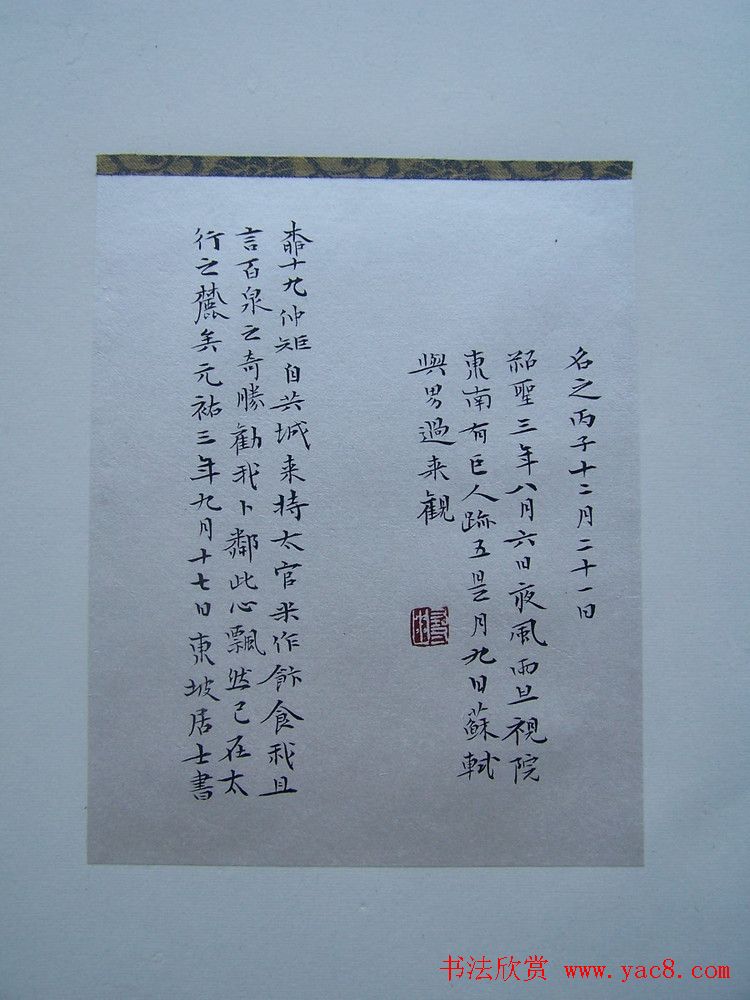 名之丙子十二月二十一日
紹聖三年八月六日夜風雨旦視院
東南有巨人跡五是月九日蘇軾
與男過来觀
桺十九仲矩自共城来持太官米作飰食我且
言百泉之奇勝勸我卜鄰此心飄然已在太
行之麓矣元祐三年九月十七日東坡居士書
书法欣赏 www.yac8.com